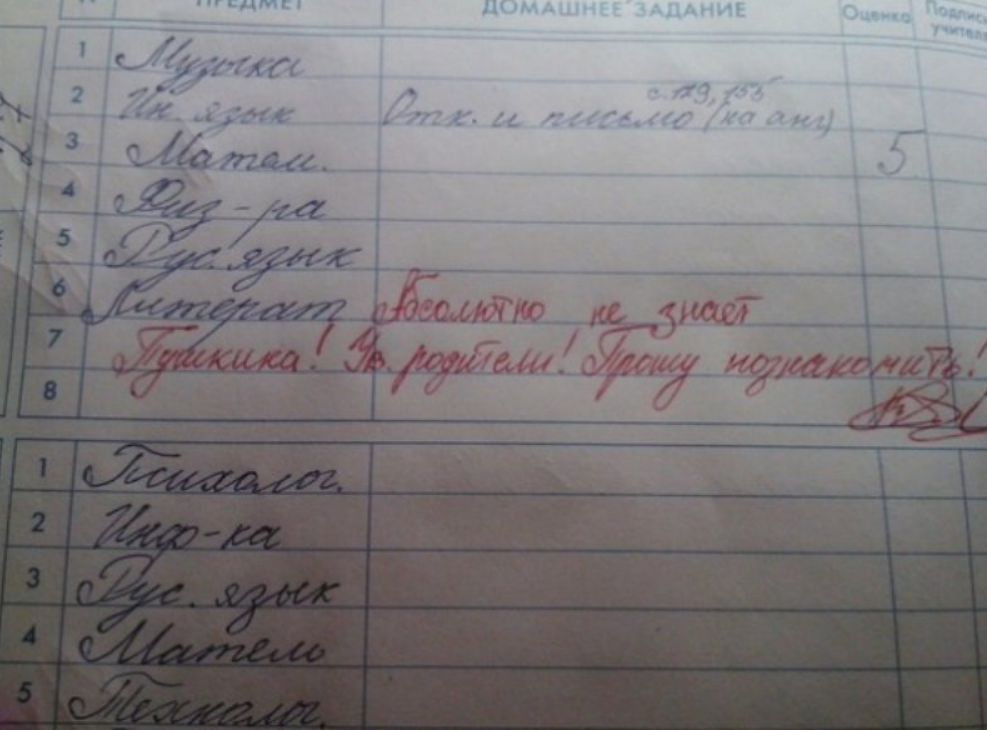 ПРЕДМЕТ ДОМАШНЕЕ ЗАДАНИЕ Оценка Подпись учителя
1 Музыка
с. 119, 153
2 Ин. язык Отк. и письмо (на анг)
3 Матем. 5
4 Физ-ра
5 Рус. язык
6 Литерат Абсолютно не знает
7 Пушкина! Ув. родители! Прошу познакомить!
8
1 Психолог.
2 Инф-ка
3 Рус. язык
4 Матем
5 Технолог.